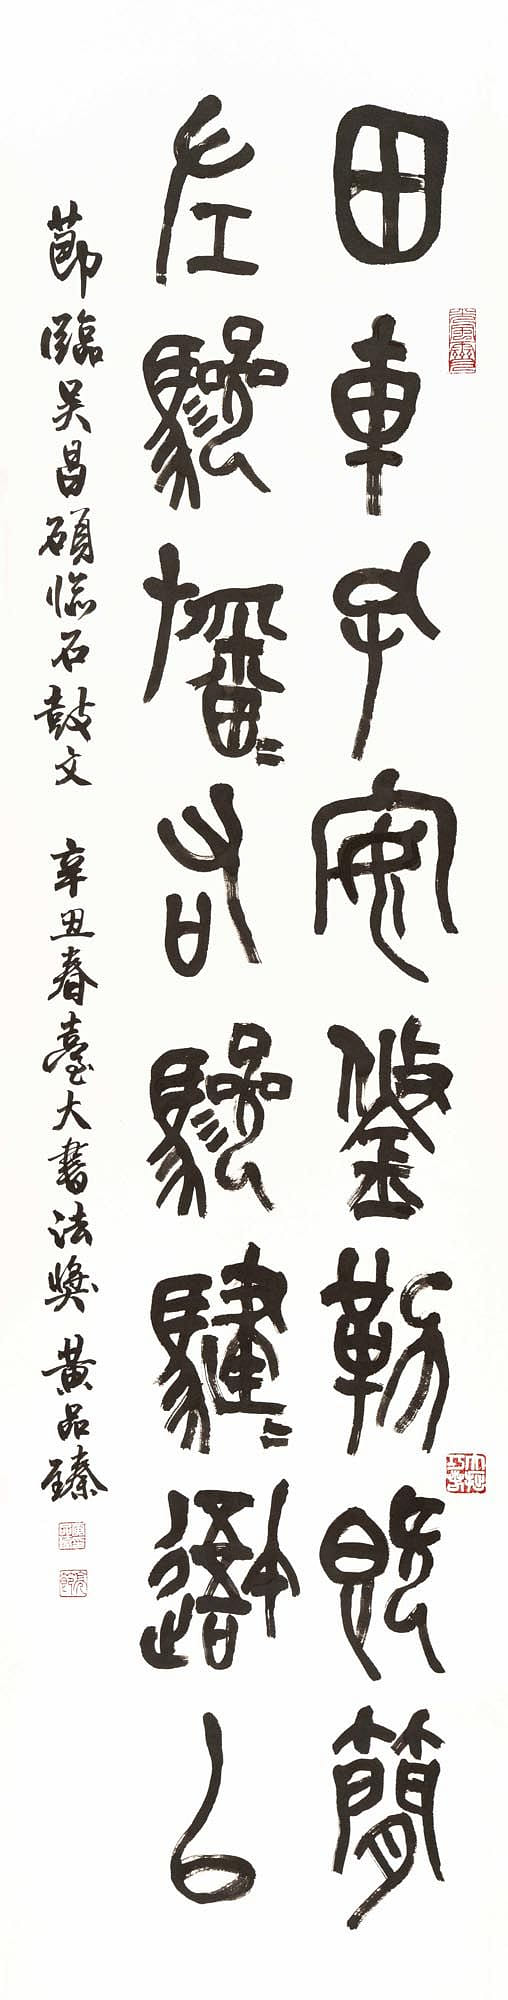 田車孔安鋚勒既簡
左驂旛=右驂騝=以
節臨吳昌碩臨石鼓文 辛丑春臺大書法獎 黃品臻